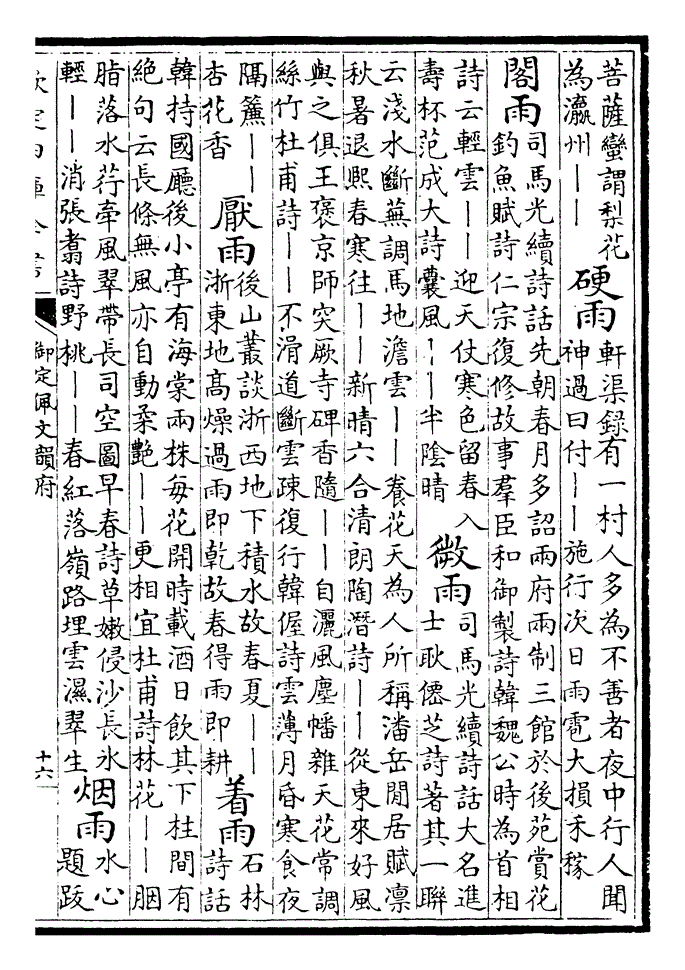 菩薩蠻謂梨花
為瀛州——
硬雨
軒渠録有一村人多為不善者夜中行人聞
神過曰付——施行次日雨雹大損禾稼
閣雨
司馬光續詩話先朝春月多詔兩府兩制三館於後苑賞花
釣魚賦詩仁宗復修故事羣臣和御製詩韓魏公時為首相
詩云輕雲——迎天仗寒色留春入
壽杯范成大詩囊風——半陰晴
微雨
司馬光續詩話大名進
士耿僊芝詩著其一聯
云淺水斷蕪調馬地澹雲——養花天為人所稱潘岳閒居賦凛
秋暑退熙春寒往——新晴六合清朗陶潛詩——從東來好風
與之俱王褒京師突厥寺碑香隨——自灑風塵幡雜天花常調
絲竹杜甫詩——不滑道斷雲疎復行韓偓詩雲薄月昏寒食夜
隔簾——
杏花香
厭雨
後山叢談浙西地下積水故春夏——
浙東地髙燥過雨即乾故春得雨即耕
着雨
石林
詩話
韓持國廳後小亭有海棠兩株毎花開時載酒日飲其下柱間有
絶句云長條無風亦自動柔艷——更相宜杜甫詩林花——胭
脂落水荇牽風翠帶長司空圖早春詩草嫩侵沙長氷
輕——消張翥詩野桃——春紅落嶺路埋雲濕翠生
烟雨
水心
題跋
欽定四庫全書
御定佩文韻府
十六